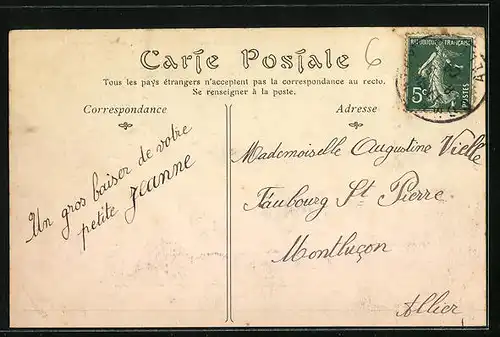 Carte Postale
6
Tous les pays étrangers n'acceptent pas la correspondance au recto.
Se renseigner à la poste.
Correspondance
Adresse
REPUBLIQUE FRANÇAISE
5c
POSTES
Un gros baiser de votre
petite Jeanne
Mademoiselle Augustine Vielle
Faubourg St Pierre
Montluçon
Allier